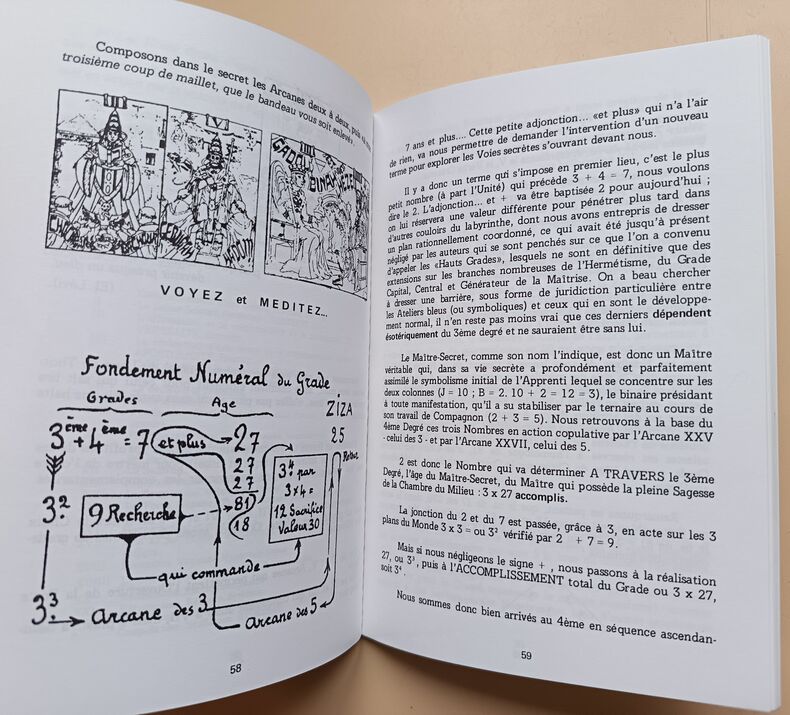 Composons dans le secret les Arcanes deux à deux, puis
troisième coup de maillet, que le bandeau vous soit enlevé.
III
V
VOYEZ et MEDITEZ...
Fondement Numéral du Grade
Grades Age ZIZA
3ème + 4ème = 7 et plus 27 25
27
27
Retour
3² 9 Recherche 81
18
3⁴ par
3x4 =
12 Sacrifice
Valeur 30
qui commande
3³ Arcane des 3
Arcane des 5
58
7 ans et plus.... Cette petite adjonction... «et plus» qui n'a l'air
de rien, va nous permettre de demander l'intervention d'un nouveau
terme pour explorer les Voies secrètes s'ouvrant devant nous.
Il y a donc un terme qui s'impose en premier lieu, c'est le plus
petit nombre (à part l'Unité) qui précède 3 + 4 = 7, nous voulons
dire le 2. L'adjonction... et + va être baptisée 2 pour aujourd'hui ;
on lui réservera une valeur différente pour pénétrer plus tard dans
d'autres couloirs du labyrinthe, dont nous avons entrepris de dresser
un plan rationnellement coordonné, ce qui avait été jusqu'à présent
négligé par les auteurs qui se sont penchés sur ce que l'on a convenu
d'appeler les «Hauts Grades», lesquels ne sont en définitive que des
extensions sur les branches nombreuses de l'Hermétisme, du Grade
Capital, Central et Générateur de la Maîtrise. On a beau chercher
à dresser une barrière, sous forme de juridiction particulière entre
les Ateliers bleus (ou symboliques) et ceux qui en sont le développe-
ment normal, il n'en reste pas moins vrai que ces derniers dépendent
ésotériquement du 3ème degré et ne sauraient être sans lui.
Le Maître-Secret, comme son nom l'indique, est donc un Maître
véritable qui, dans sa vie secrète a profondément et parfaitement
assimilé le symbolisme initial de l'Apprenti lequel se concentre sur les
deux colonnes (J = 10 ; B = 2. 10 + 2 = 12 = 3), le binaire présidant
à toute manifestation, qu'il a su stabiliser par le ternaire au cours de
son travail de Compagnon (2 + 3 = 5). Nous retrouvons à la base du
4ème Degré ces trois Nombres en action copulative par l'Arcane XXV
- celui des 3 - et par l'Arcane XXVII, celui des 5.
2 est donc le Nombre qui va déterminer A TRAVERS le 3ème
Degré, l'âge du Maître-Secret, du Maître qui possède la pleine Sagesse
de la Chambre du Milieu : 3 x 27 accomplis.
La jonction du 2 et du 7 est passée, grâce à 3, en acte sur les 3
plans du Monde 3 x 3 = ou 3² vérifié par 2 + 7 = 9.
Mais si nous négligeons le signe + , nous passons à la réalisation
27, ou 3³, puis à l'ACCOMPLISSEMENT total du Grade ou 3 x 27,
soit 3⁴.
Nous sommes donc bien arrivés au 4ème en séquence ascendan-
59